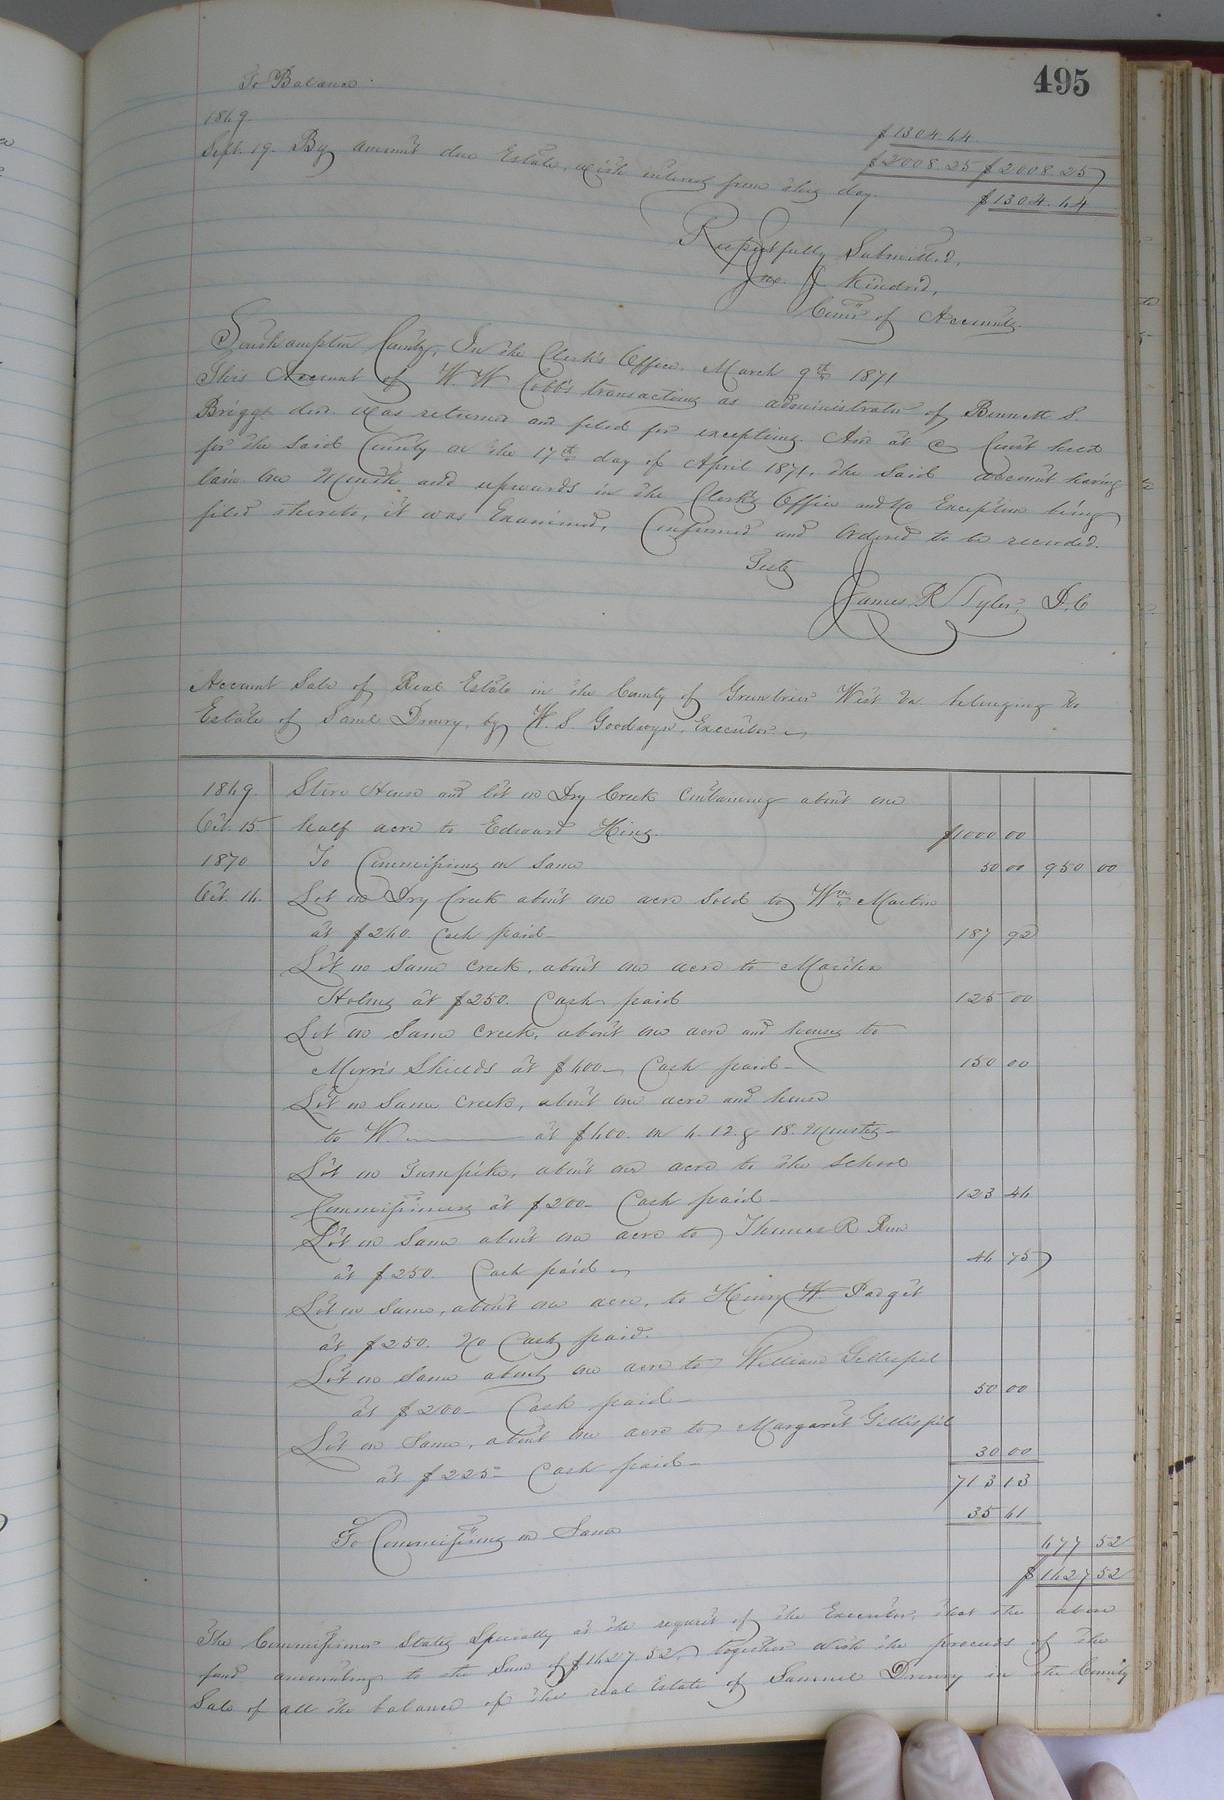 495
To Balance
$1304.44
1869. $2008.25 $2008.25
Sept. 19. By amount due Estate, with interest from this day. $1304.44
Respectfully Submitted,
Jno. J. Kindred,
Comr of Accounts.
Southampton County, In the Clerk's Office, March 9th 1871
This Account of W. W. Cobb's transactions as administrator of Bennett S.
Briggs decd. was returned and filed for exceptions. And at a Court held
for the said County on the 17th day of April 1871, the said account having
lain one Month and upwards in the Clerk's Office and No Exception being
filed thereto, it was Examined, Confirmed and Ordered to be recorded.
Teste
James R Tyler, D.C
Account Sale of Real Estate in the County of Greenbrier West Va belonging to
Estate of Saml Drewry, by W. S. Goodwyn, Executor
1869. Store House and lot on Dry Creek containing about one
Oct. 15 half acre to Edward King. $1000 00
1870 To Commissions on Same 50 00 950 00
Oct. 14. Lot on Dry Creek about one acre Sold to Wm Martin
at $240. Cash paid 187 92
Lot on Same Creek, about one acre to Martha
Holmes at $250. Cash paid 125 00
Lot on Same Creek, about one acre and houses to
Morris Shields at $400 Cash paid 150 00
Lot on Same Creek, about one acre and house
to W at $400. on 6. 12. & 18. Months
Lot on Turnpike, about one acre to the School
Commissioners at $200 Cash paid 123 46
Lot on Same about one acre to Thomas R
at $250. Cash paid 46 75
Lot on Same, about one acre, to Henry W. Padgit
at $250. No Cash paid.
Lot on Same about one acre to William Gillispie
at $200 Cash paid 50 00
Lot on Same, about one acre to Margaret Gillispie
at $225 Cash paid 30 00
713 13
To Commissions on Same 35 61
677 52
$1627 52
The Commissioner States Specially at the request of the Executor, that the above
fund amounting to the Sum of $1627.52, together with the proceeds of the
Sale of all the balance of the real Estate of Samuel Drewry in the County